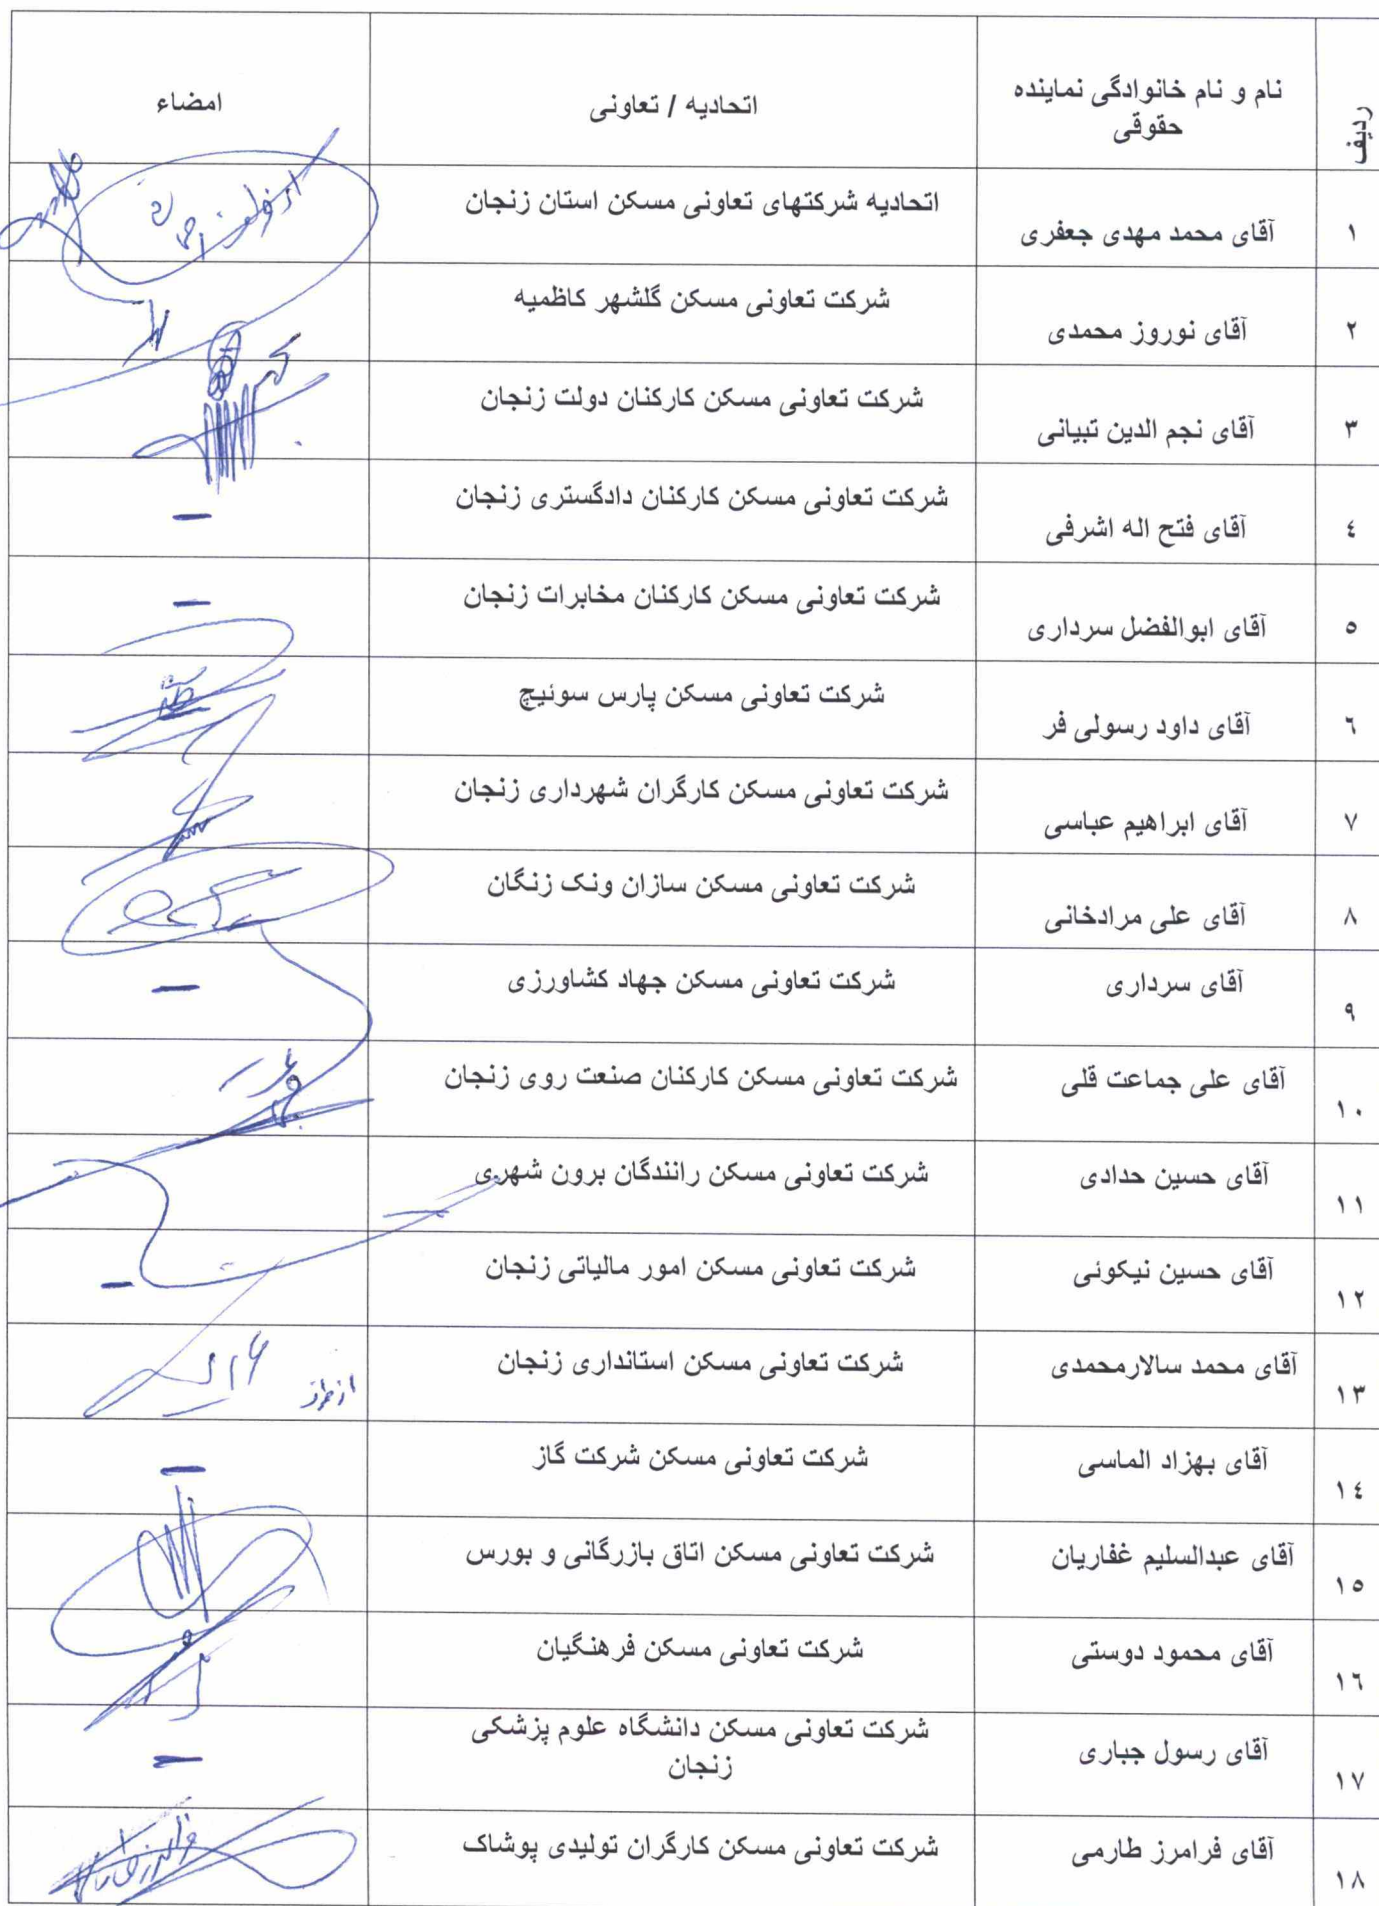 ردیف
نام و نام خانوادگی نماینده
حقوقی
اتحادیه / تعاونی
امضاء
١ آقای محمد مهدی جعفری اتحادیه شرکتهای تعاونی مسکن استان زنجان
٢ آقای نوروز محمدی شرکت تعاونی مسکن گلشهر کاظمیه
٣ آقای نجم الدین تبیانی شرکت تعاونی مسکن کارکنان دولت زنجان
٤ آقای فتح اله اشرفی شرکت تعاونی مسکن کارکنان دادگستری زنجان –
٥ آقای ابوالفضل سرداری شرکت تعاونی مسکن کارکنان مخابرات زنجان –
٦ آقای داود رسولی فر شرکت تعاونی مسکن پارس سوئیچ
٧ آقای ابراهیم عباسی شرکت تعاونی مسکن کارگران شهرداری زنجان
٨ آقای علی مرادخانی شرکت تعاونی مسکن سازان ونک زنگان
٩ آقای سرداری شرکت تعاونی مسکن جهاد کشاورزی –
١٠ آقای علی جماعت قلی شرکت تعاونی مسکن کارکنان صنعت روی زنجان
١١ آقای حسین حدادی شرکت تعاونی مسکن رانندگان برون شهری
١٢ آقای حسین نیکوئی شرکت تعاونی مسکن امور مالیاتی زنجان –
١٣ آقای محمد سالارمحمدی شرکت تعاونی مسکن استانداری زنجان از طرف
١٤ آقای بهزاد الماسی شرکت تعاونی مسکن شرکت گاز –
١٥ آقای عبدالسلیم غفاریان شرکت تعاونی مسکن اتاق بازرگانی و بورس
١٦ آقای محمود دوستی شرکت تعاونی مسکن فرهنگیان
١٧ آقای رسول جباری شرکت تعاونی مسکن دانشگاه علوم پزشکی
زنجان –
١٨ آقای فرامرز طارمی شرکت تعاونی مسکن کارگران تولیدی پوشاک